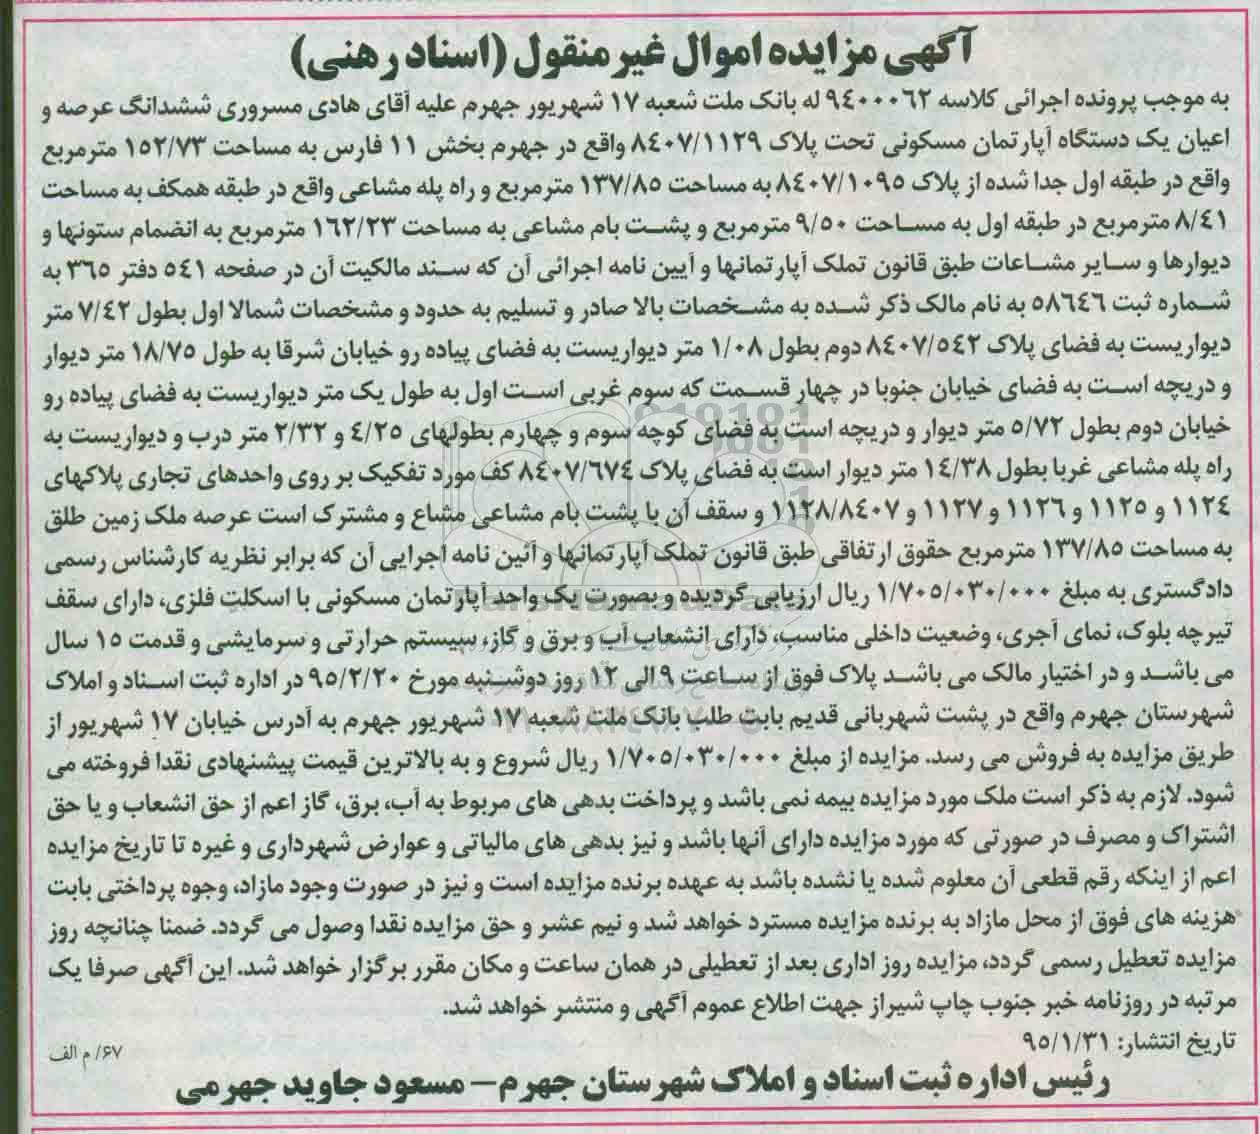 آگهی مزایده اموال غیر منقول (اسناد رهنی)
به موجب پرونده اجرائی کلاسه ۹۴۰۰۰۶۲ له بانک ملت شعبه ۱۷ شهریور جهرم علیه آقای هادی مسروری ششدانگ عرصه و
اعیان یک دستگاه آپارتمان مسکونی تحت پلاک ۸۴۰۷/۱۱۲۹ واقع در جهرم بخش ۱۱ فارس به مساحت ۱۵۲/۷۳ مترمربع
واقع در طبقه اول جدا شده از پلاک ۸۴۰۷/۱۰۹۵ به مساحت ۱۳۷/۸۵ مترمربع و راه پله مشاعی واقع در طبقه همکف به مساحت
۸/۴۱ مترمربع در طبقه اول به مساحت ۹/۵۰ مترمربع و پشت بام مشاعی به مساحت ۱۶۲/۲۳ مترمربع به انضمام ستونها و
دیوارها و سایر مشاعات طبق قانون تملک آپارتمانها و آیین نامه اجرائی آن که سند مالکیت آن در صفحه ۵۴۱ دفتر ۳۶۵ به
شماره ثبت ۵۸۶۴۶ به نام مالک ذکر شده به مشخصات بالا صادر و تسلیم به حدود و مشخصات شمالا اول بطول ۷/۴۲ متر
دیواریست به فضای پلاک ۸۴۰۷/۵۴۲ دوم بطول ۱/۰۸ متر دیواریست به فضای پیاده رو خیابان شرقا به طول ۱۸/۷۵ متر دیوار
و دریچه است به فضای خیابان جنوبا در چهار قسمت که سوم غربی است اول به طول یک متر دیواریست به فضای پیاده رو
خیابان دوم بطول ۵/۷۲ متر دیوار و دریچه است به فضای کوچه سوم و چهارم بطولهای ۴/۲۵ و ۲/۳۲ متر درب و دیواریست به
راه پله مشاعی غربا بطول ۱۴/۳۸ متر دیوار است به فضای پلاک ۸۴۰۷/۶۷۴ کف مورد تفکیک بر روی واحدهای تجاری پلاکهای
۱۱۲۴ و ۱۱۲۵ و ۱۱۲۶ و ۱۱۲۷ و ۱۱۲۸/۸۴۰۷ و سقف آن با پشت بام مشاعی مشاع و مشترک است عرصه ملک زمین طلق
به مساحت ۱۳۷/۸۵ مترمربع حقوق ارتفاقی طبق قانون تملک آپارتمانها و آئین نامه اجرایی آن که برابر نظریه کارشناس رسمی
دادگستری به مبلغ ۱/۷۰۵/۰۳۰/۰۰۰ ریال ارزیابی گردیده و بصورت یک واحد آپارتمان مسکونی با اسکلت فلزی، دارای سقف
تیرچه بلوک، نمای آجری، وضعیت داخلی مناسب، دارای انشعاب آب و برق و گاز، سیستم حرارتی و سرمایشی و قدمت ۱۵ سال
می باشد و در اختیار مالک می باشد پلاک فوق از ساعت ۹ الی ۱۲ روز دوشنبه مورخ ۹۵/۲/۲۰ در اداره ثبت اسناد و املاک
شهرستان جهرم واقع در پشت شهربانی قدیم بابت طلب بانک ملت شعبه ۱۷ شهریور جهرم به آدرس خیابان ۱۷ شهریور از
طریق مزایده به فروش می رسد. مزایده از مبلغ ۱/۷۰۵/۰۳۰/۰۰۰ ریال شروع و به بالاترین قیمت پیشنهادی نقدا فروخته می
شود. لازم به ذکر است ملک مورد مزایده بیمه نمی باشد و پرداخت بدهی های مربوط به آب، برق، گاز اعم از حق انشعاب و یا حق
اشتراک و مصرف در صورتی که مورد مزایده دارای آنها باشد و نیز بدهی های مالیاتی و عوارض شهرداری و غیره تا تاریخ مزایده
اعم از اینکه رقم قطعی آن معلوم شده یا نشده باشد به عهده برنده مزایده است و نیز در صورت وجود مازاد، وجوه پرداختی بابت
هزینه های فوق از محل مازاد به برنده مزایده مسترد خواهد شد و نیم عشر و حق مزایده نقدا وصول می گردد. ضمنا چنانچه روز
مزایده تعطیل رسمی گردد، مزایده روز اداری بعد از تعطیلی در همان ساعت و مکان مقرر برگزار خواهد شد. این آگهی صرفا یک
مرتبه در روزنامه خبر جنوب چاپ شیراز جهت اطلاع عموم آگهی و منتشر خواهد شد.
تاریخ انتشار: ۹۵/۱/۳۱
۶۷/ م الف
رئیس اداره ثبت اسناد و املاک شهرستان جهرم – مسعود جاوید جهرمی